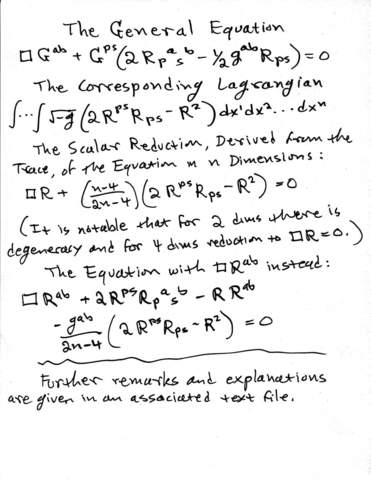 The General Equation
□G^{ab} + G^{ps}(2R_p{}^a{}_s{}^b - 1/2 g^{ab}R_{ps}) = 0
The Corresponding Lagrangian
∫⋯∫√-g (2R^{ps}R_{ps} - R²)dx¹dx²...dxⁿ
The Scalar Reduction, Derived from the
Trace, of the Equation in n Dimensions:
□R + ((n-4)/(2n-4))(2R^{ps}R_{ps} - R²) = 0
(It is notable that for 2 dims there is
degeneracy and for 4 dims reduction to □R=0.)
The Equation with □R^{ab} instead:
□R^{ab} + 2R^{ps}R_p{}^a{}_s{}^b - RR^{ab}
- g^{ab}/(2n-4) (2R^{ps}R_{ps} - R²) = 0
Further remarks and explanations
are given in an associated text file.